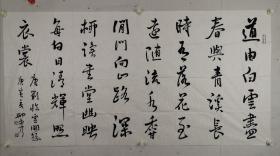 道由白雲盡
春與青谿長
時有落花至
遠隨流水香
閒門向山路深
柳讀書堂幽映
每白日清輝照
衣裳